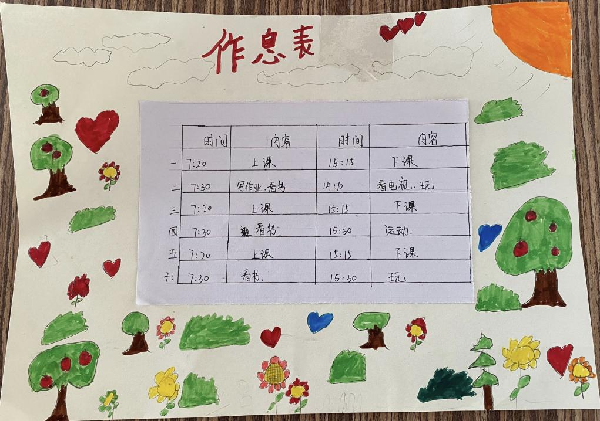 作息表
时间 内容 时间 内容
一 7:20 上课 15:15 下课
二 7:30 写作业、看书 15:30 看电视、玩
三 7:20 上课 15:15 下课
四 7:30 看书 15:30 运动
五 7:20 上课 15:15 下课
六 7:30 看书 15:30 玩